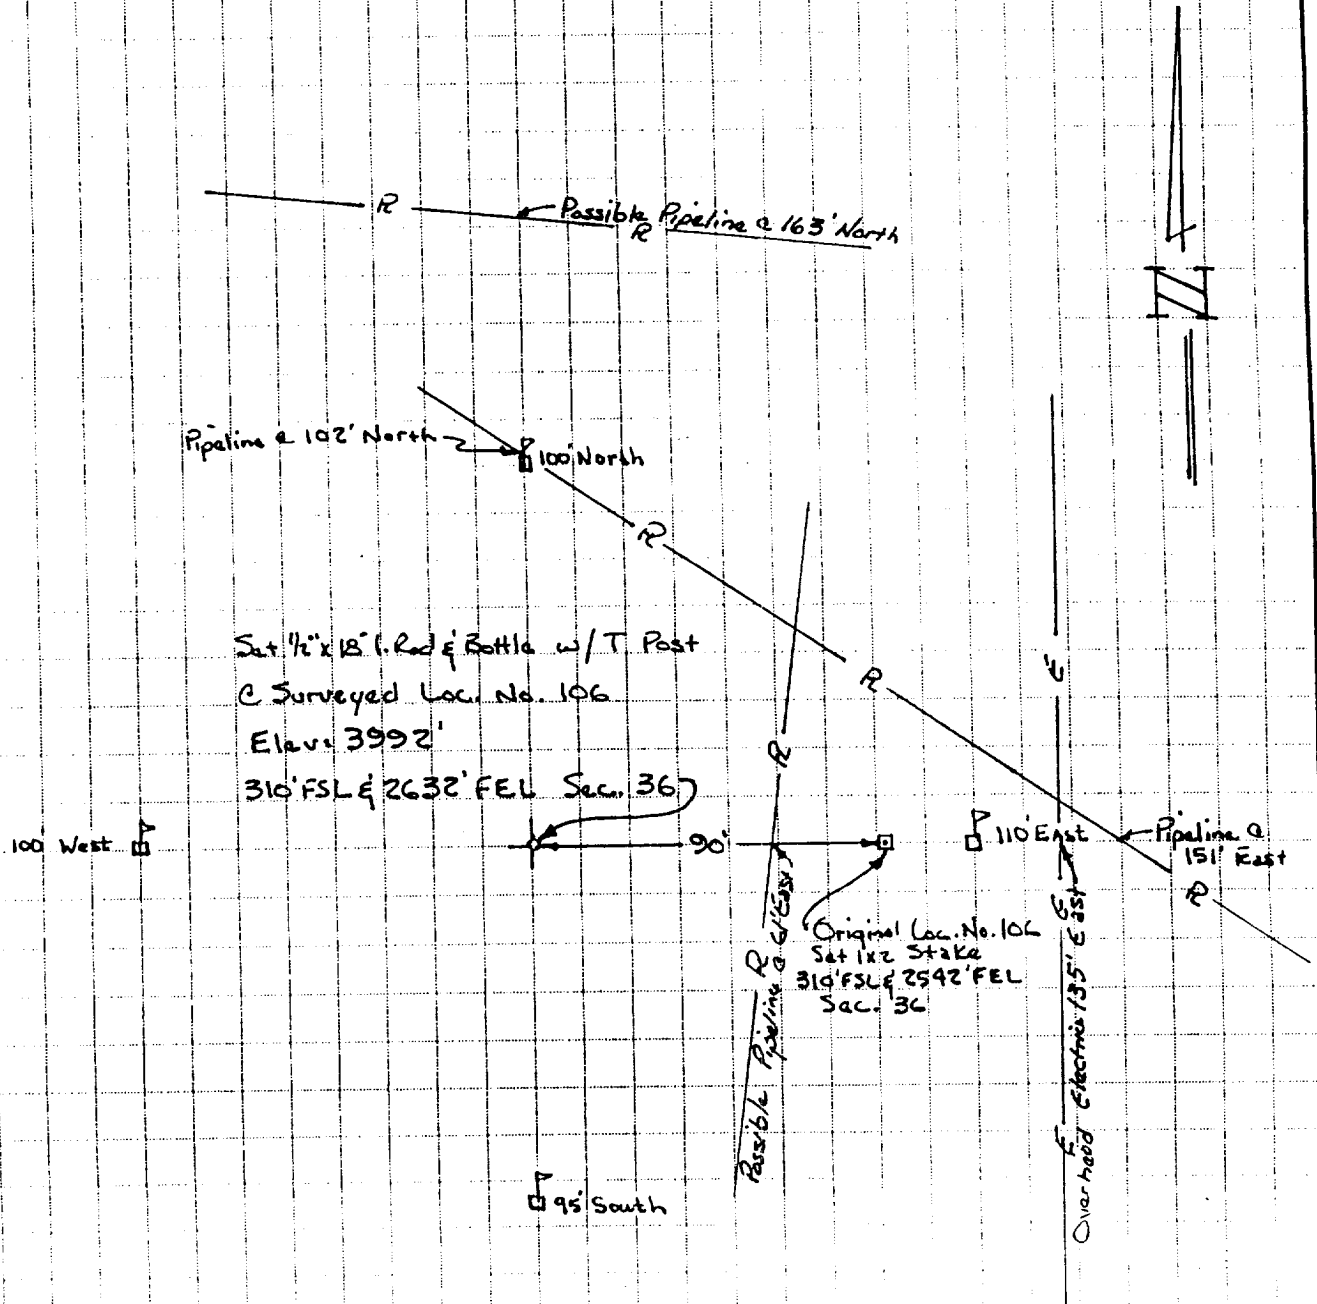 R
Possible Pipeline @ 163' North
R
N
Pipeline @ 102' North
100' North
R
Set 1/2" x 18" I. Rod & Bottle w/ T Post
@ Surveyed Loc. No. 106
Elev. 3992'
310' FSL & 2632' FEL Sec. 36
R
E
R
100' West
90'
110' East
Pipeline @
151' East
R
Original Loc. No. 106
Set 1x2 Stake
310' FSL & 2542' FEL
Sec. 36
R
Possible Pipeline @ 61' East
E
E
Overhead Electric 135' East
95' South